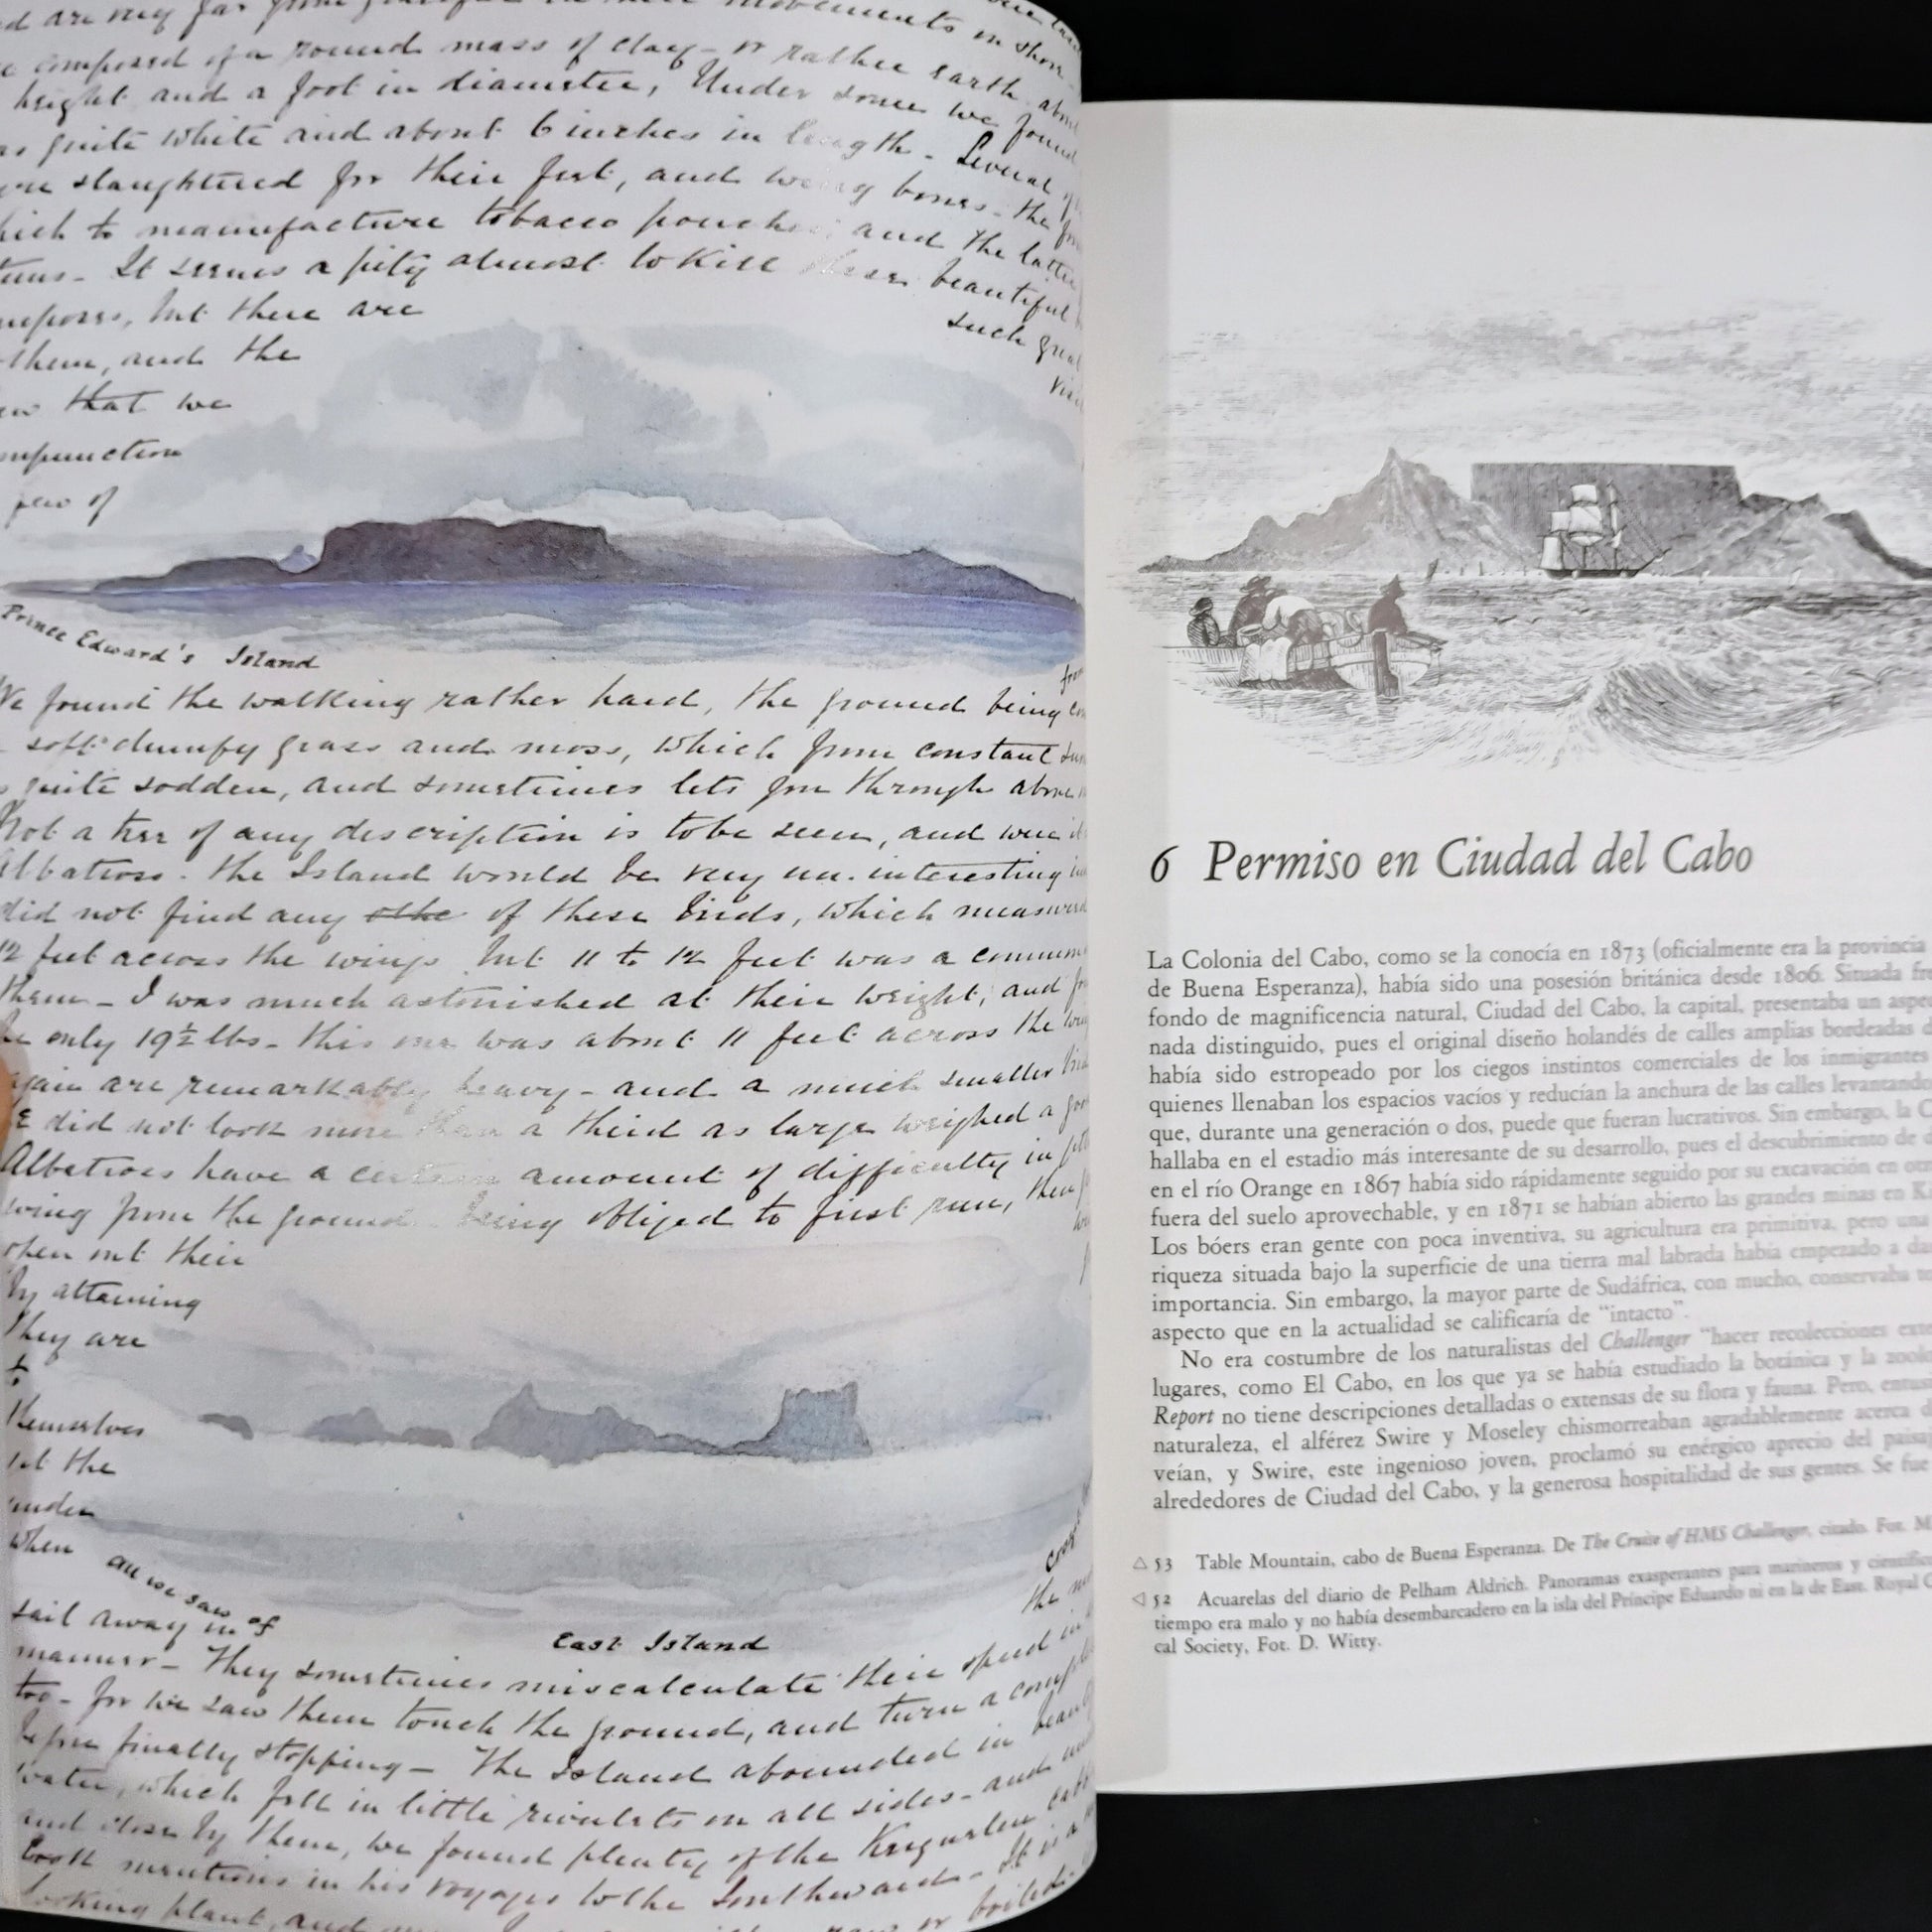 composed of a round mass of clay - or rather earth about
height and a foot in diameter, Under some we found
quite white and about 6 inches in length - Several
slaughtered for their feet, and wing bones - the
which to manufacture tobacco pouches and the latter
It seems a pity almost to kill these beautiful
but there are
such great
them, and the
that we
compunction
few of
Prince Edward's Island
We found the walking rather hard, the ground being
soft clumpy grass and moss, which from constant
quite sodden, and sometimes lets you through above
Not a tree of any description is to be seen, and were it
Albatross - the Island would be very un-interesting
did not find any of these birds, which measured
12 feet across the wings but 11 to 12 feet was a common
them - I was much astonished at their weight, and
only 19½ lbs - this one was about 11 feet across the
again are remarkably heavy - and a much smaller
did not look more than a third as large weighed a
Albatross have a certain amount of difficulty in
from the ground being obliged to first run, then
their
By attaining
they are
to
themselves
at the
under
when
all we saw of
East Island
sail away in
manner - They sometimes miscalculate their speed
too - for we saw them touch the ground, and turn a
before finally stopping - The Island abounded in
water, which fell in little rivulets on all sides - and
and close by them, we found plenty of the Kerguelen
Cook mentions in his voyages to the Southward - It is a
looking plant, and
6 Permiso en Ciudad del Cabo
La Colonia del Cabo, como se la conocía en 1873 (oficialmente era la provincia
de Buena Esperanza), había sido una posesión británica desde 1806. Situada
fondo de magnificencia natural, Ciudad del Cabo, la capital, presentaba un
nada distinguido, pues el original diseño holandés de calles amplias bordeadas
había sido estropeado por los ciegos instintos comerciales de los inmigrantes
quienes llenaban los espacios vacíos y reducían la anchura de las calles levantando
que, durante una generación o dos, puede que fueran lucrativos. Sin embargo, la
hallaba en el estadio más interesante de su desarrollo, pues el descubrimiento de
en el río Orange en 1867 había sido rápidamente seguido por su excavación en
fuera del suelo aprovechable, y en 1871 se habían abierto las grandes minas en
Los bóers eran gente con poca inventiva, su agricultura era primitiva, pero una
riqueza situada bajo la superficie de una tierra mal labrada había empezado a
importancia. Sin embargo, la mayor parte de Sudáfrica, con mucho, conservaba
aspecto que en la actualidad se calificaría de “intacto”.
No era costumbre de los naturalistas del Challenger “hacer recolecciones
lugares, como El Cabo, en los que ya se había estudiado la botánica y la
Report no tiene descripciones detalladas o extensas de su flora y fauna. Pero,
naturaleza, el alférez Swire y Moseley chismorreaban agradablemente acerca
veían, y Swire, este ingenioso joven, proclamó su enérgico aprecio del
alrededores de Ciudad del Cabo, y la generosa hospitalidad de sus gentes. Se fue
△ 53 Table Mountain, cabo de Buena Esperanza. De The Cruise of HMS Challenger, citado. Fot.
◁ 52 Acuarelas del diario de Pelham Aldrich. Panoramas exasperantes para marineros y
tiempo era malo y no había desembarcadero en la isla del Príncipe Eduardo ni en la de East. Royal
cal Society, Fot. D. Witty.